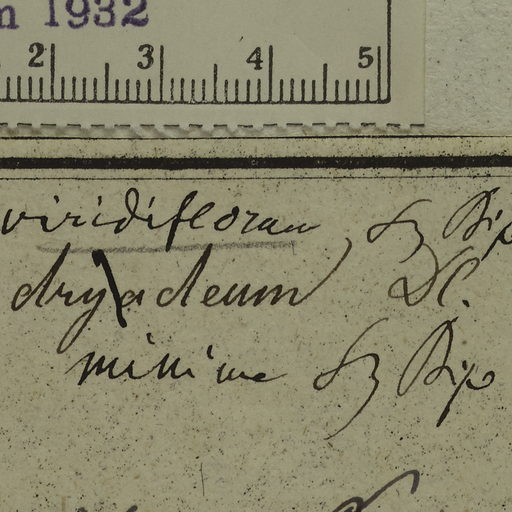 m 1932
2 3 4 5
viridifloram Sz Bip
dryadeum DC.
minime Sz Bip